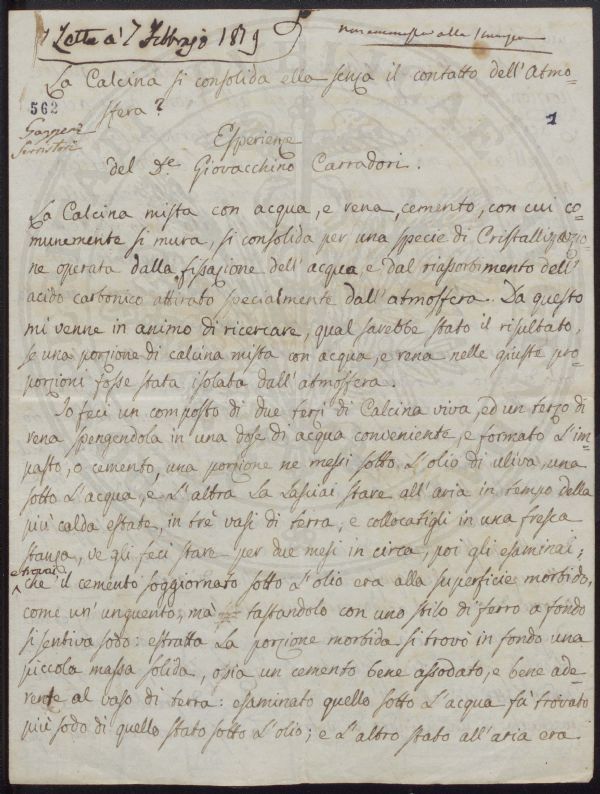 Letta a' 7 Febbrajo 1819
non ammesso alla stampa
La Calcina si consolida ella senza il contatto dell'Atmo=
562
sfera?
1
Gazzeri
Esperienze
del D.e Giovacchino Carradori.
La Calcina mista con acqua, e rena, cemento, con cui co=
munemente si mura, si consolida per una specie di Cristallizzazio=
ne operata dalla fissazione dell'acqua, e dal riassorbimento dell'
acido carbonico attirato specialmente dall'atmosfera. Da questo
mi venne in animo di ricercare, qual sarebbe stato il risultato,
se una porzione di calcina mista con acqua, e rena nelle giuste pro=
porzioni fosse stata isolata dall'atmosfera.
Io feci un composto di due terzi di Calcina viva, ed un terzo di
rena spengendola in una dose di acqua conveniente, e formato l'im=
pasto, o cemento, una porzione ne messi sotto l'olio di uliva, una
sotto l'acqua, e l'altra la lasciai stare all'aria in tempo della
più calda estate, in trè vasi di terra, e collocatigli in una fresca
stanza, ve gli feci stare per due mesi in circa, poi gli esaminai;
e trovai
che il cemento soggiornato sotto l'olio era alla superficie morbido,
come un'unguento, mà tastandolo con uno stilo di ferro a fondo
si sentiva sodo: estratta la porzione morbida si trovò in fondo una
piccola massa solida, ossia un cemento bene assodato, e bene ade=
rente al vaso di terra: esaminato quello sotto l'acqua fù trovato
più sodo di quello stato sotto l'olio; e l'altro stato all'aria era